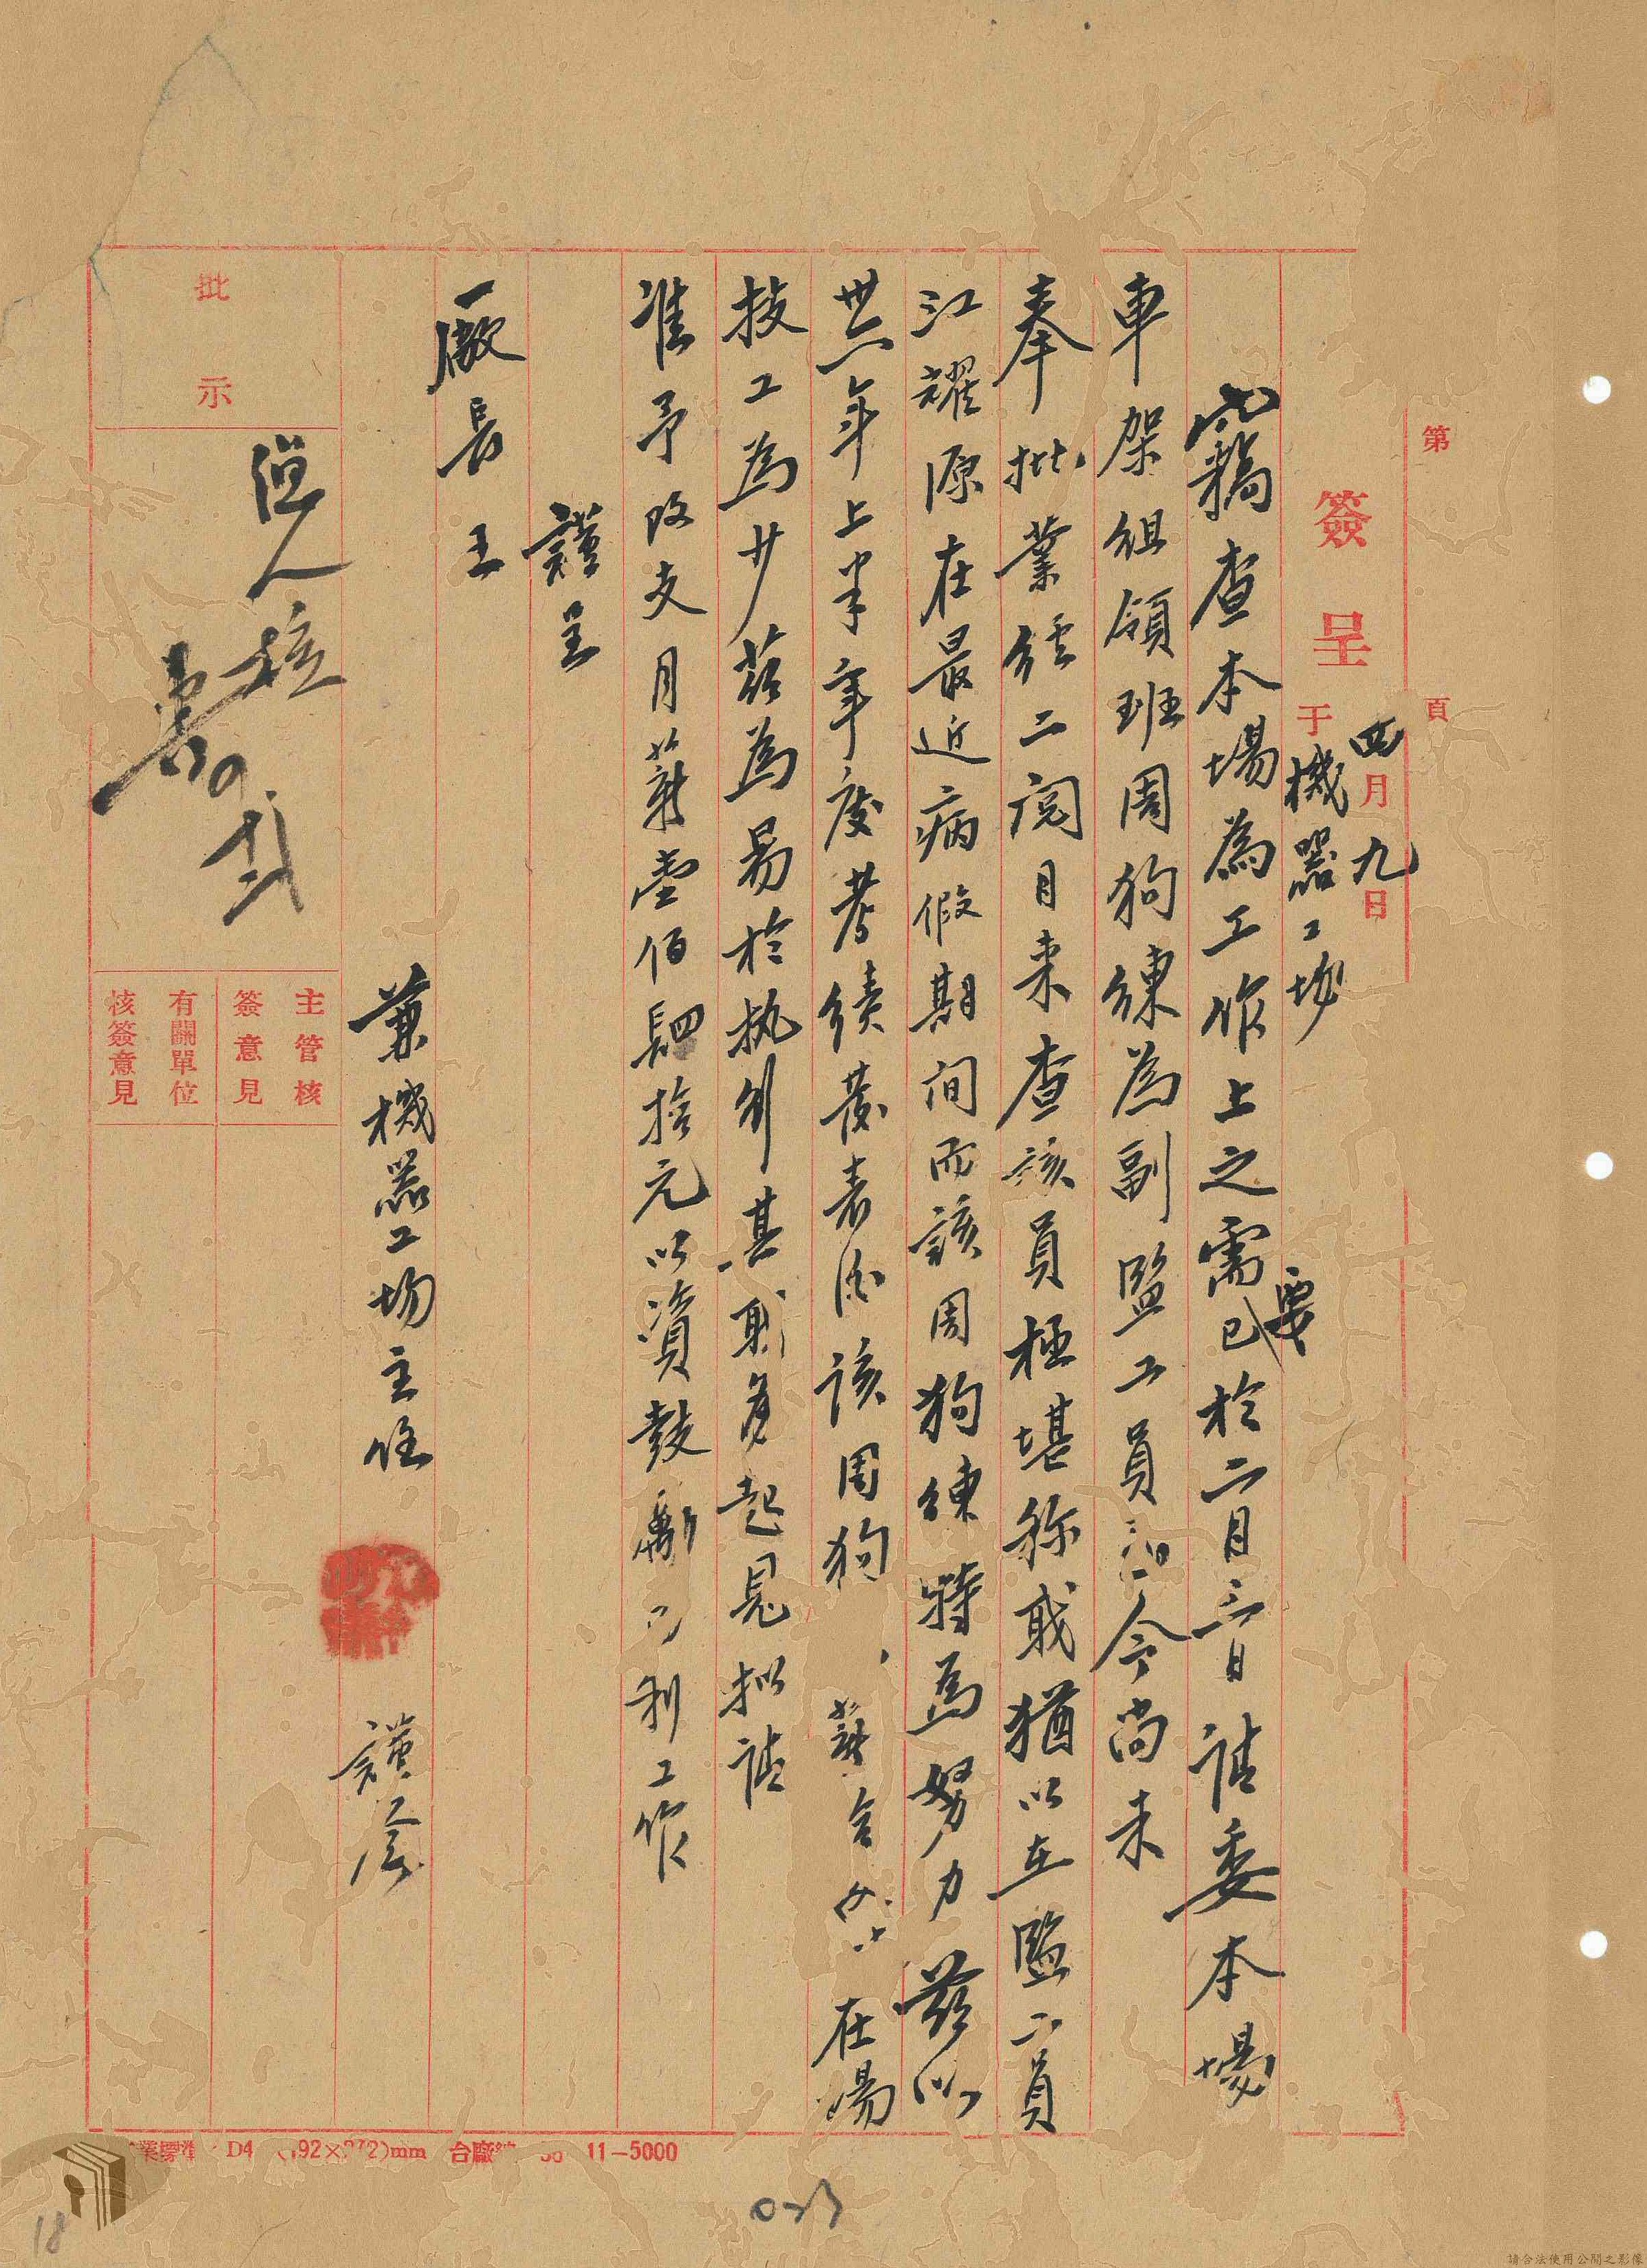 第 頁
簽呈
四月九日
于機器工場
竊查本場為工作上之需要已於二月三日請委本場
車架組領班周狗練為副監工員 今尚未
奉批業經二閱月來查該員極堪稱職猶以在監工員
江耀原在最近病假期間而該周狗練特為努力茲以
卅六年上半年度考績發表後該周狗 薪合 在場
技工為少茲為易於執行其職務起見擬請
准予改支月薪壹佰肆拾元以資鼓勵 利工作
謹呈
廠長王
兼機器工場主任 謹簽
批示
主管核簽意見
有關單位核簽意見
D4 11-5000
18
請合法使用公開之影像